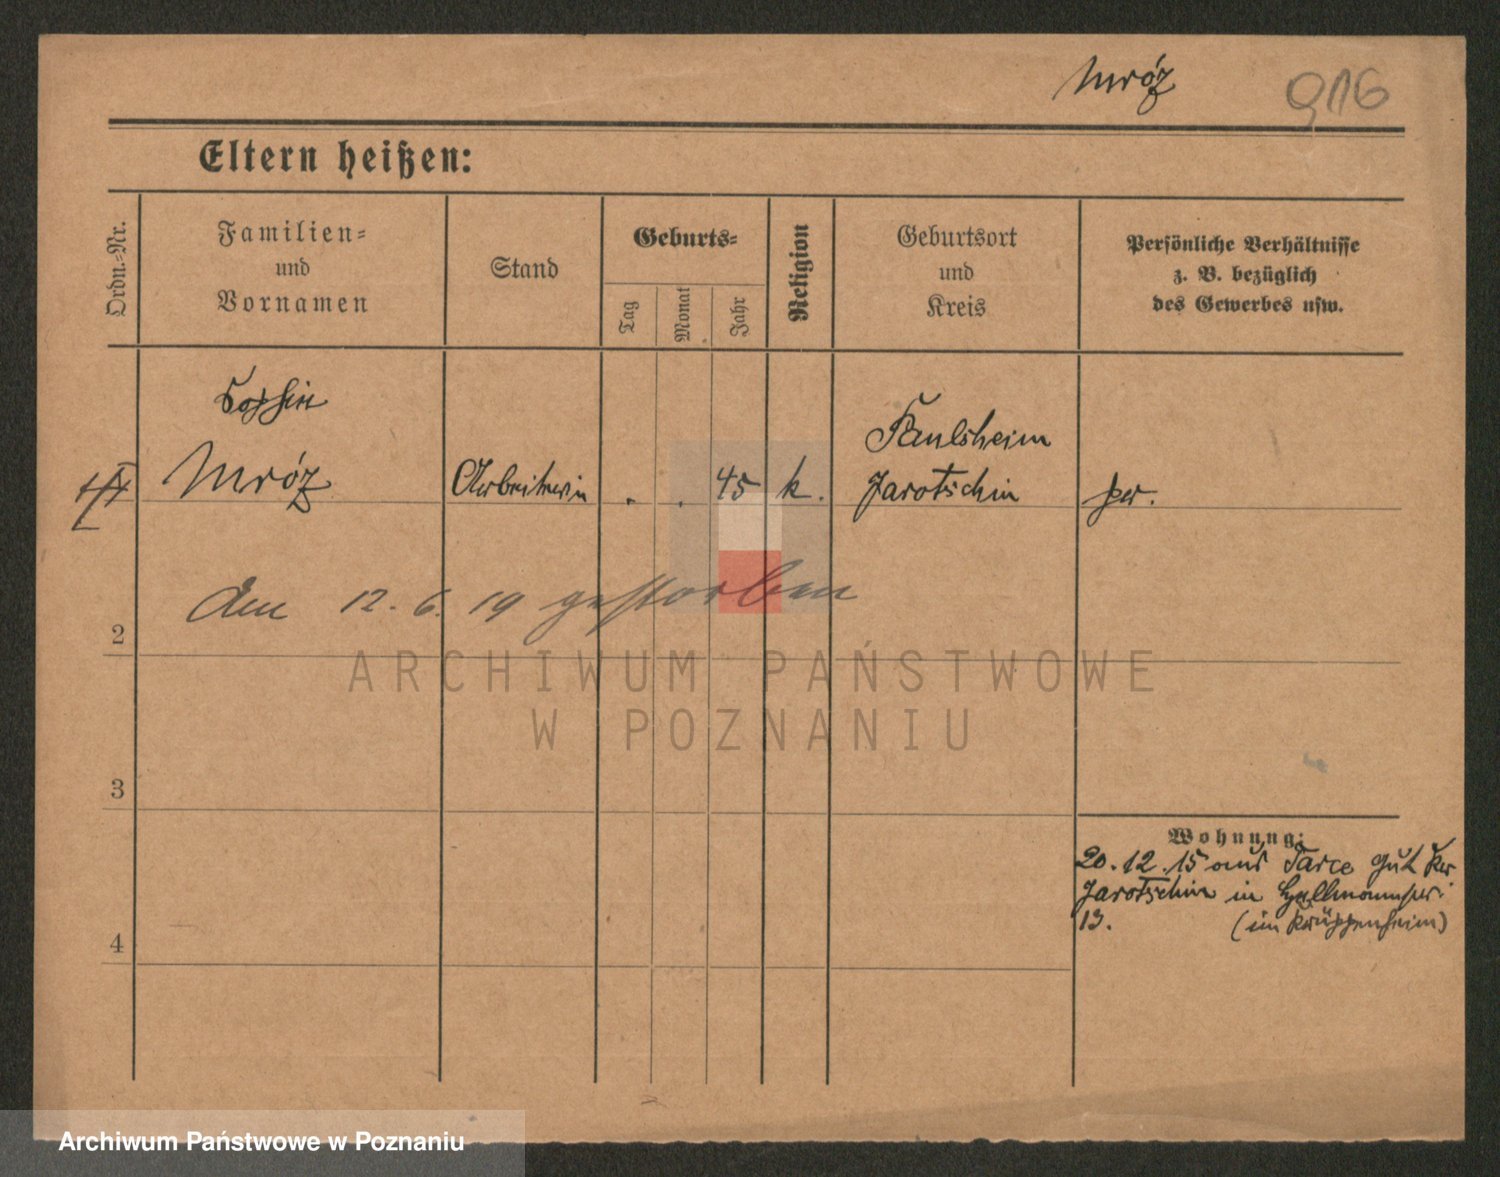 Mróz
916
Eltern heißen:
Ordn.-Nr.
Familien-
und
Vornamen
Stand
Geburts-
Tag
Monat
Jahr
Religion
Geburtsort
und
Kreis
Persönliche Verhältnisse
z. B. bezüglich
des Gewerbes usw.
Sophie
Mróz
Arbeiterin . . 45 k.
Paulsheim
Jarotschin
den 12. 6. 19 gestorben
2
3
4
Wohnung:
20. 12. 15 aus Tarce Gut Kr
Jarotschin in
13. (im Krüppenheim)
ARCHIWUM PAŃSTWOWE
W POZNANIU
Archiwum Państwowe w Poznaniu